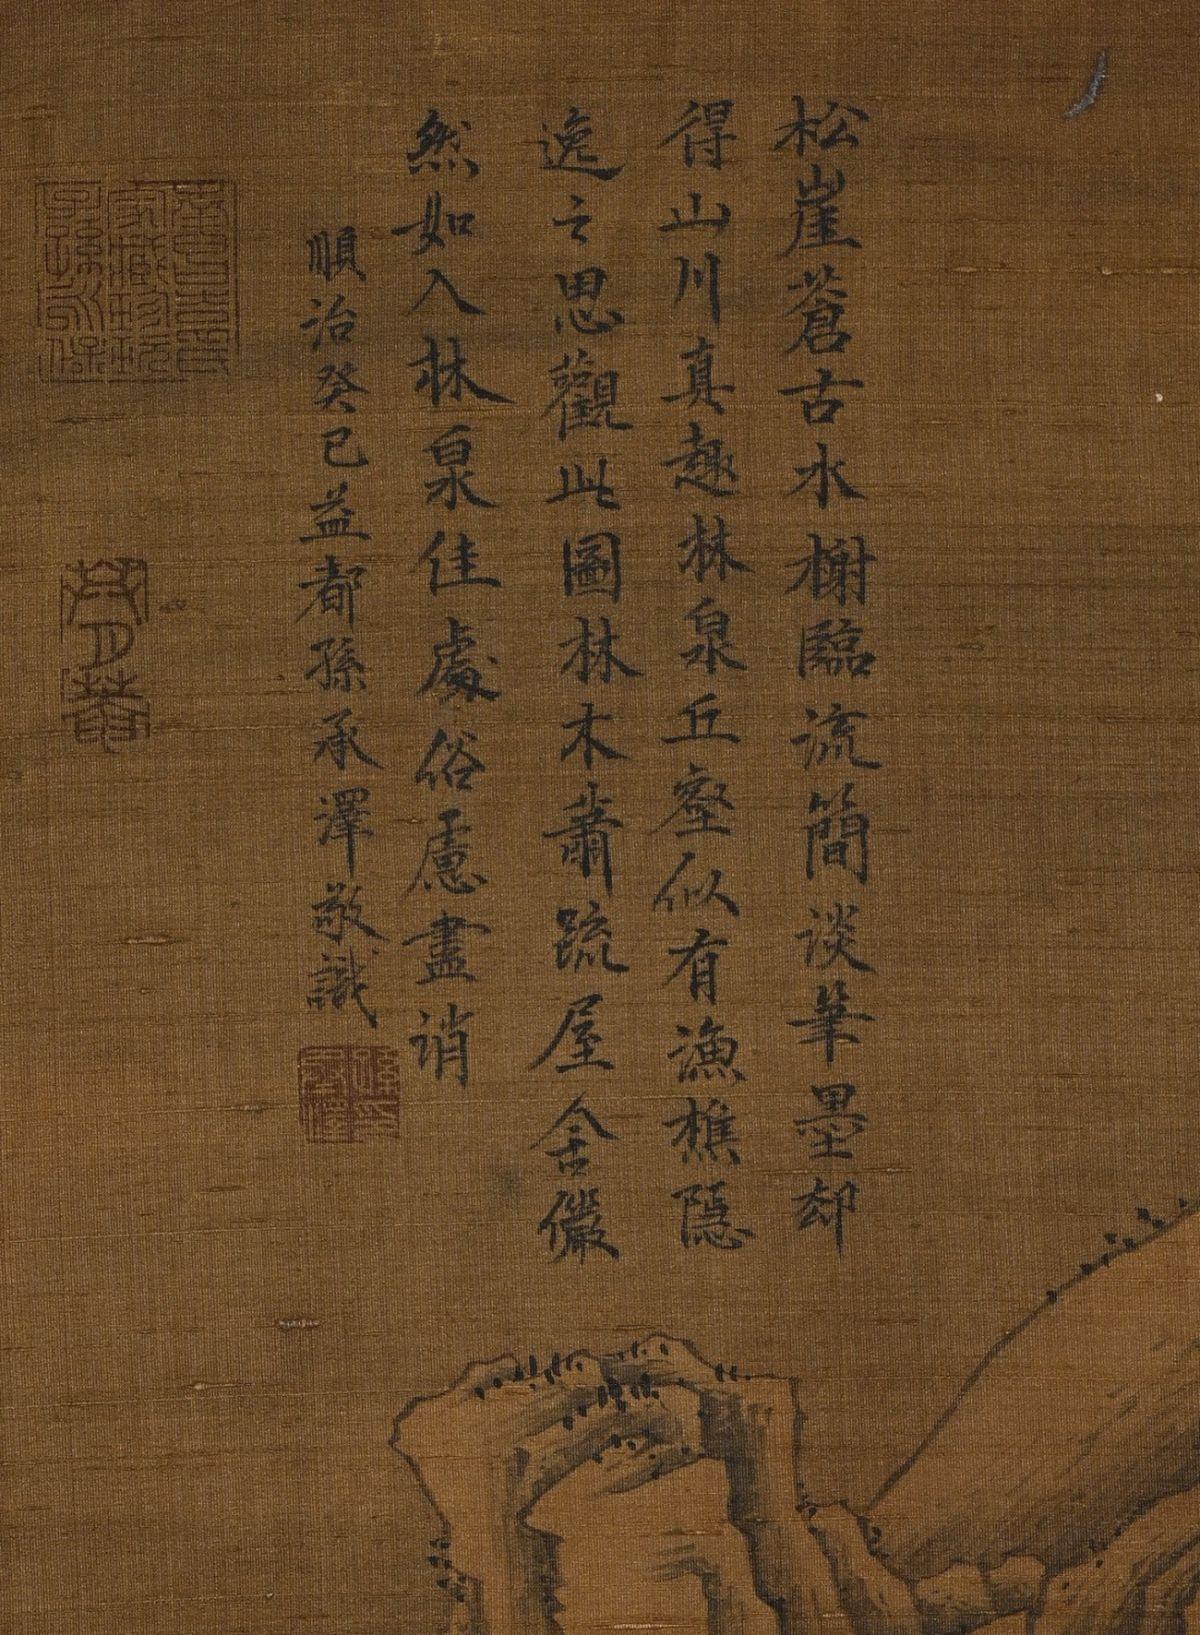 松崖蒼古水榭臨流簡淡筆墨却
得山川真趣林泉丘壑似有漁樵隱
逸之思觀此圖林木蕭疏屋舍儼
然如入林泉佳處俗慮盡消
順治癸巳益都孫承澤敬識